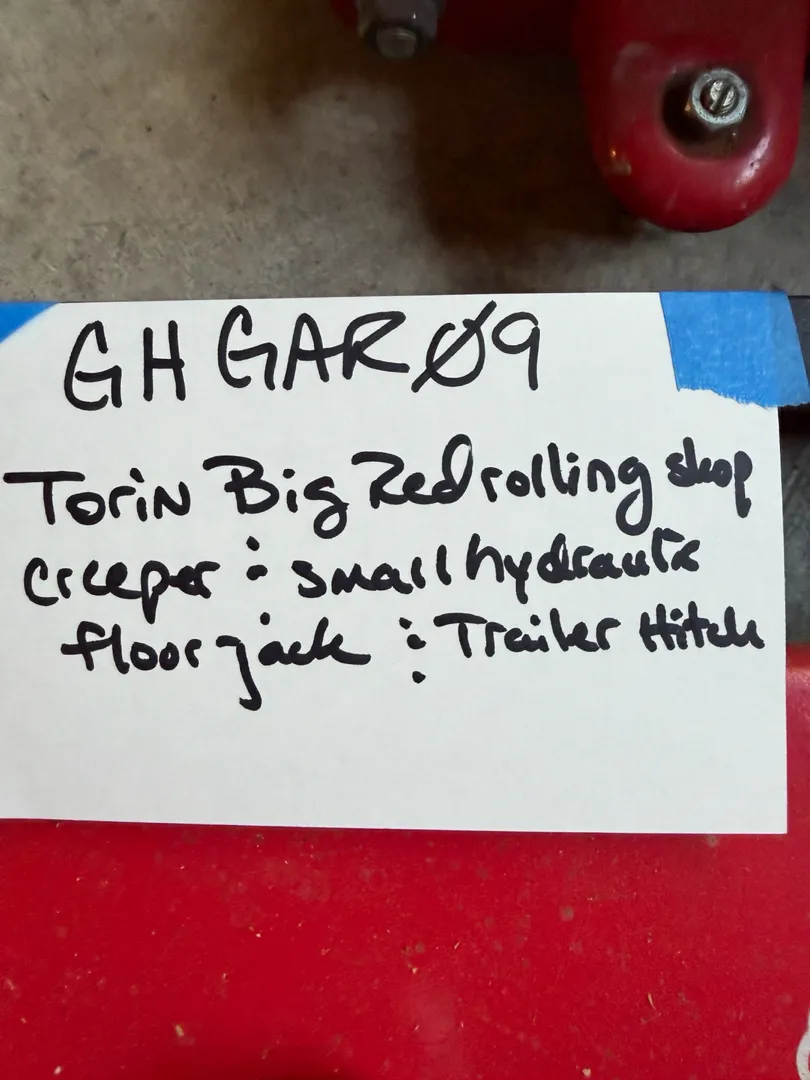 GH GAR Ø9
Torin Big Red rolling shop
creeper : small hydraulic
floor jack : Trailer Hitch